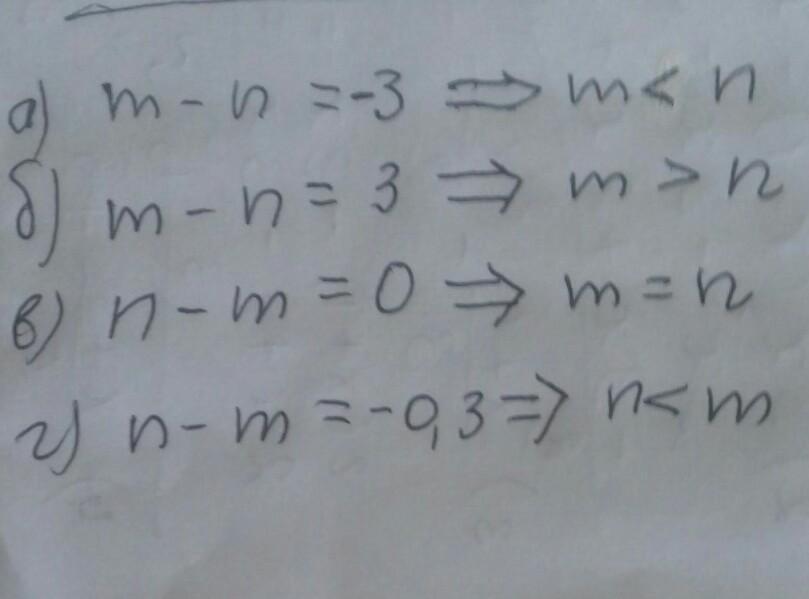 а) m - n = -3 ⟹ m < n
б) m - n = 3 ⟹ m > n
в) n - m = 0 ⟹ m = n
г) n - m = -0,3 ⟹ n < m